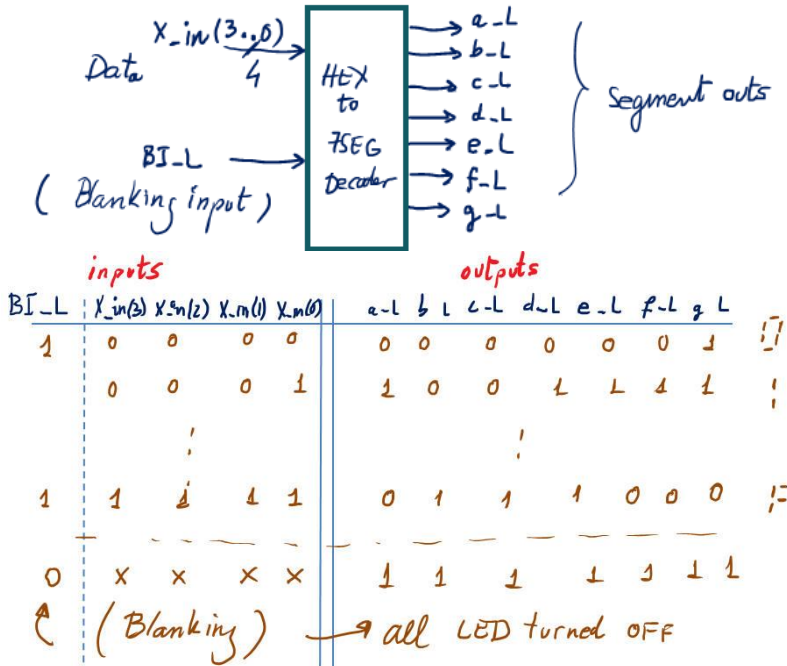 X_in(3..0)
Data
4
HEX
to
7SEG
Decoder
BI_L
(Blanking input)
a_L
b_L
c_L
d_L
e_L
f_L
g_L
Segment outs
inputs outputs
BI_L X_in(3) X_in(2) X_in(1) X_in(0) a_L b_L c_L d_L e_L f_L g_L
1 0 0 0 0 0 0 0 0 0 0 1
0 0 0 1 1 0 0 1 1 1 1
1 1 1 1 1 0 1 1 1 0 0 0
0 X X X X 1 1 1 1 1 1 1
(Blanking) all LED turned OFF